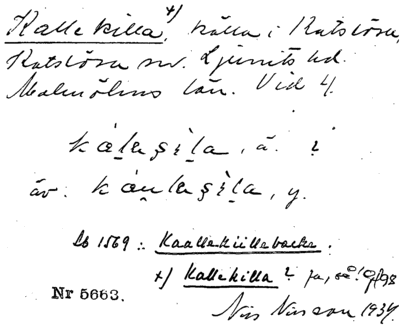 Kallekilla, +) källa i Katslösa,
Katslösa sn. Ljunits hd.
Malmöhus län. Vid 4.
kalaşila, ä. ?
äv. kaulaşila, y.
Lb 1569: Kaallekiillebacke.
+) Kallekilla? ja, så!
Nr 5663.
Nils Nilsson 1934.